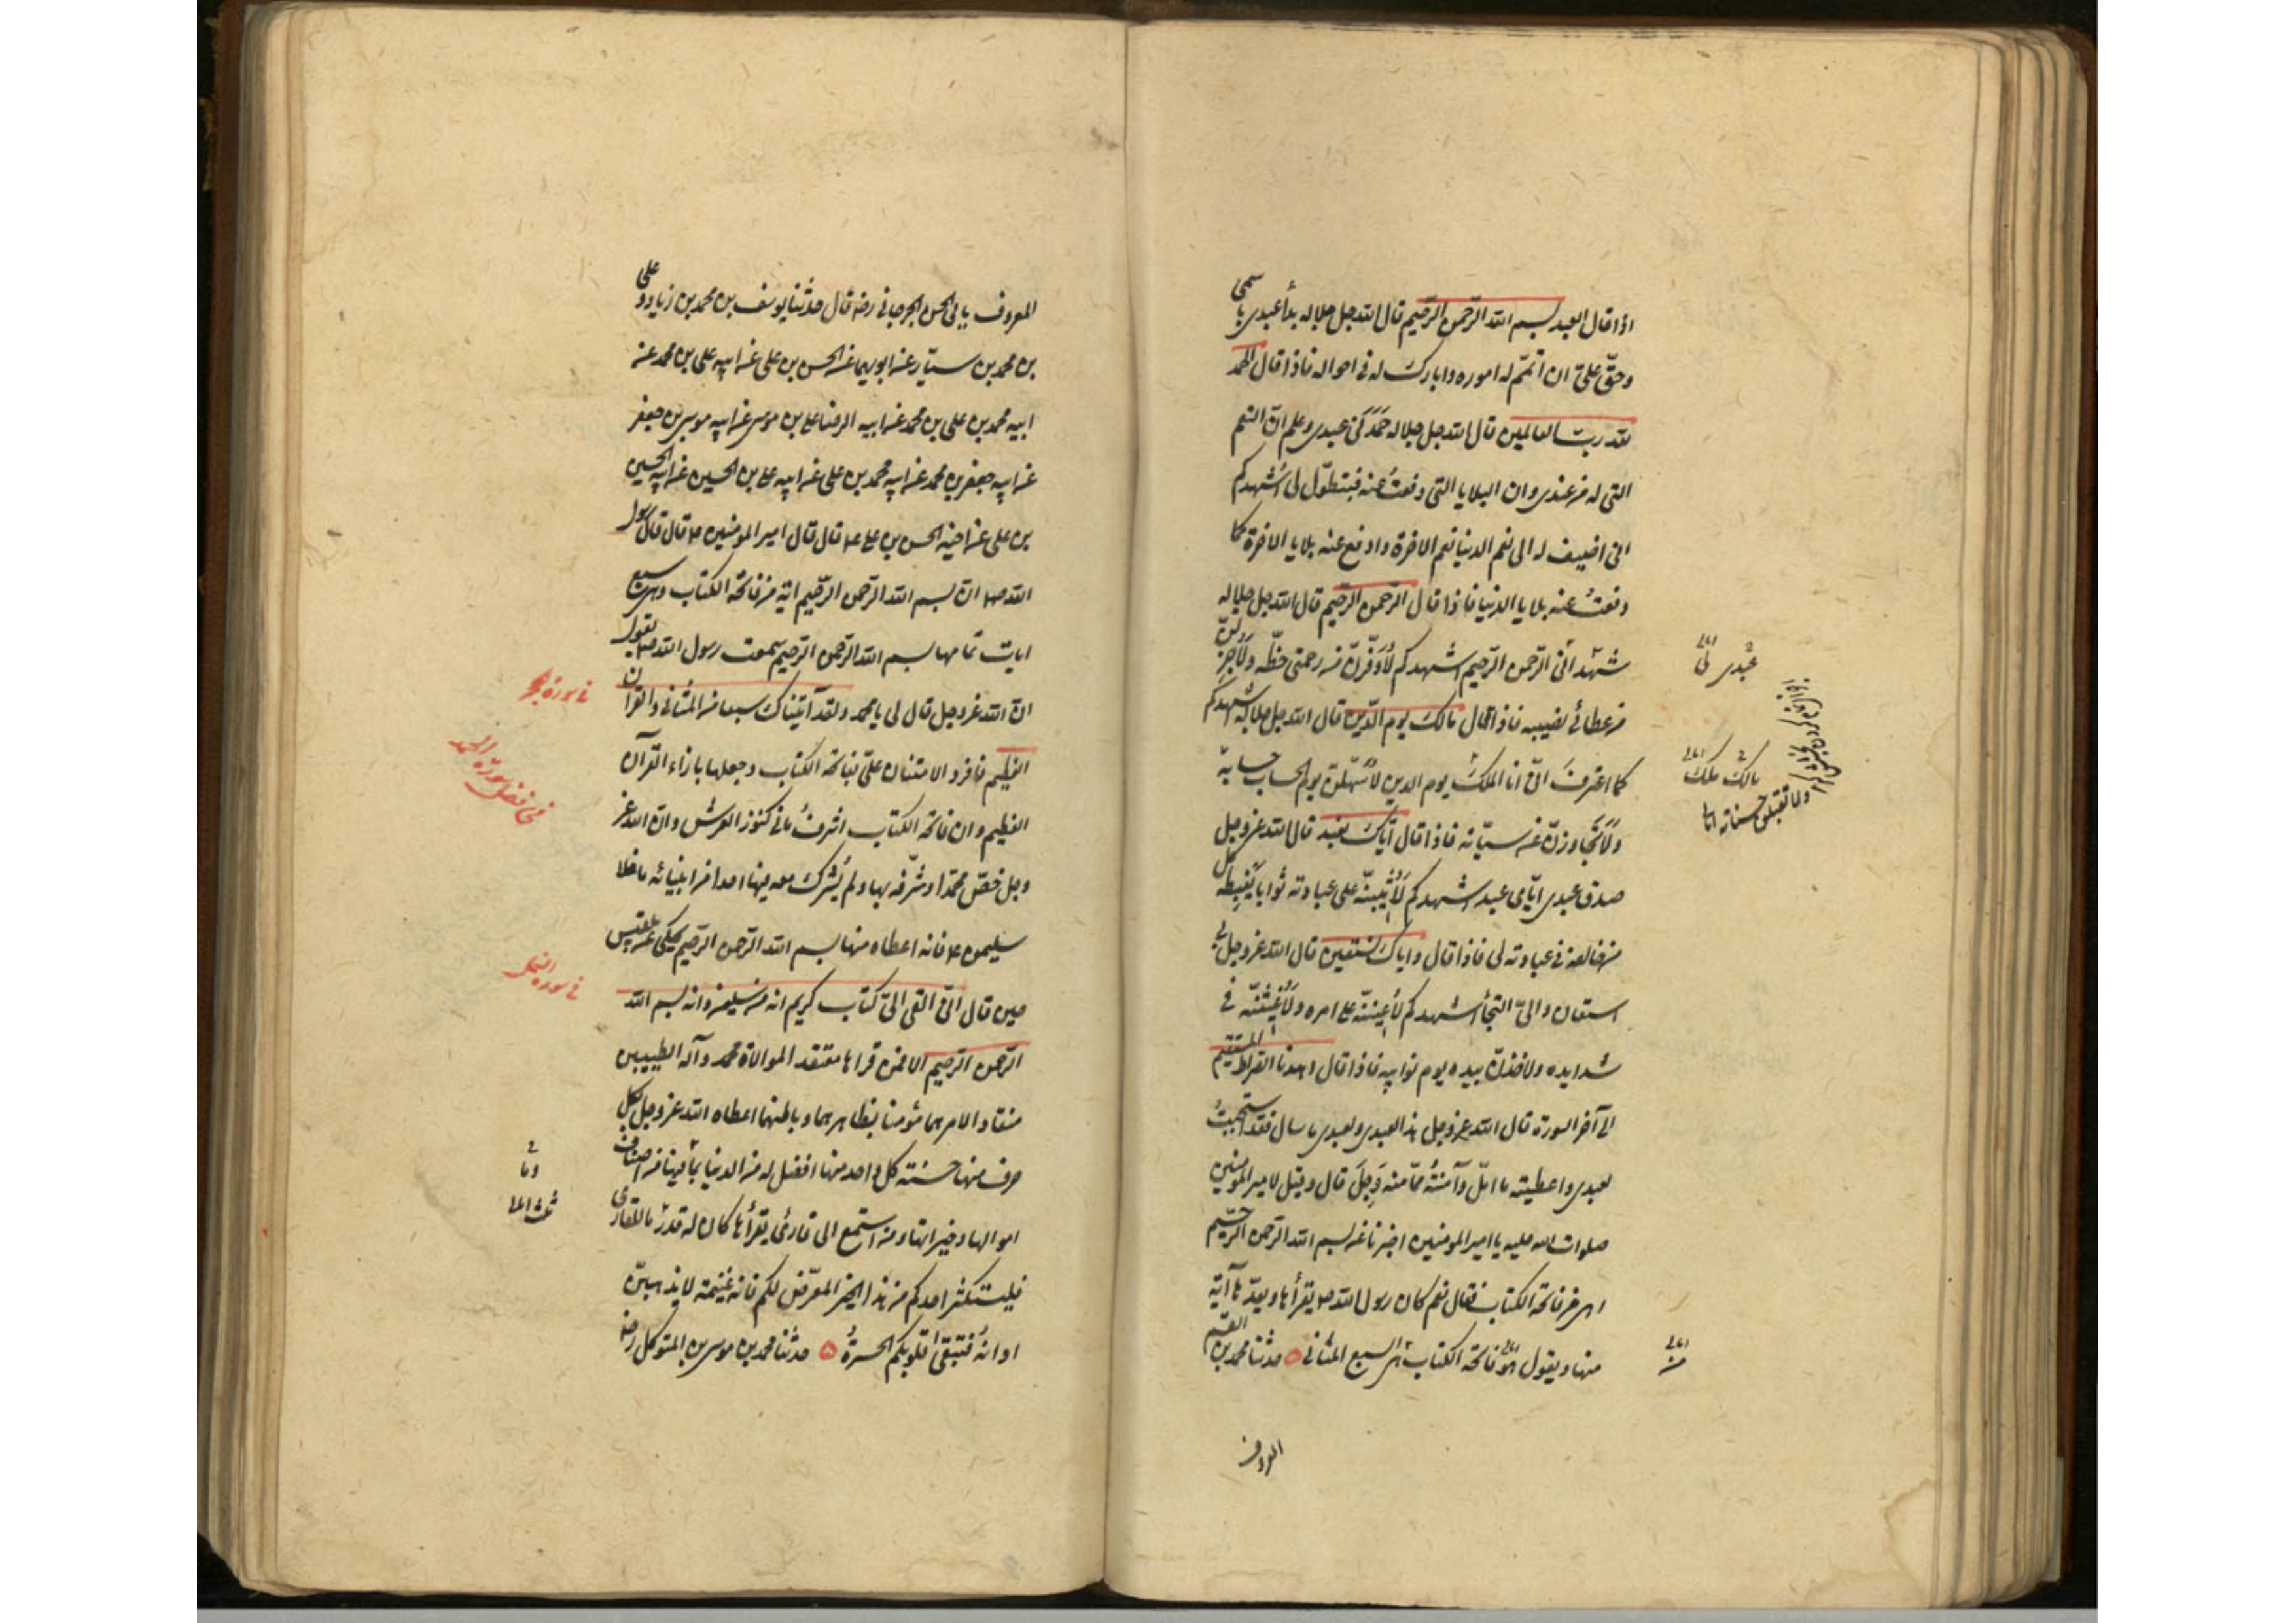 اذا قال العبد بسم الله الرّحمن الرّحيم قال الله جل جلاله بدأ عبدي باسمي
وحقّ علىّ ان اتمّم له اموره وابارك له في احواله فاذا قال الحمد
لله ربّ العالمين قال الله جل جلاله حَمَدَني عبدي وعلم انّ النعم
التي له من عندي وان البلايا التي دفعتُ عنه فبتطوّلي اُشهدكم
انى اضيف له الى نعم الدنيا نعم الاخرة وادفع عنه بلايا الاخرة كما
دفعتُ عنه بلايا الدنيا فاذا قال الرّحمن الرّحيم قال الله جل جلاله
شهد انّى الرّحمن الرّحيم اشهدكم لَاُوَفّرنّ من رحمتى حظّه ولَاُجزلنّ
من عطائى نصيبه فاذا قال مالك يوم الدّين قال الله جل جلاله اشهدكم
كما اعترفَ انّى انا الملكُ يوم الدين لَاُسهّلنّ يوم الحساب حسابه
ولَاَتَجاوزنّ عن سيّاته فاذا قال ايّاك نعبد قال الله عز وجل
صدق عبدي ايّاى عبد اشهدكم لَاُثيبنّه على عبادته ثوابا يَغبِطه كل
من خالفه في عبادته لى فاذا قال واياك نستعين قال الله عز وجل بى
استعان والىّ التجأ اشهدكم لَاُعيننّه على امره ولَاُغيثنّه في
شدايده ولاخذنّ بيده يوم نوايبه فاذا قال اهدنا الصراط المستقيم
الى آخر السورة قال الله عز وجل هذا لعبدي ولعبدي ما سال فقد استجبتُ
لعبدي واعطيته ما امّل وآمنتُه ممّا منه وَجِلَ قال وقيل لامير المؤمنين
صلوات الله عليه يا امير المؤمنين اخبرنا عن بسم الله الرّحمن الرّحيم
اهى من فاتحة الكتاب فقال نعم كان رسول الله ص يقرأها ويعدّها آية
منها ويقول فاتحة الكتاب هي السبع المثانى ۵ حدثنا محمد بن القسم
عبدى
مالك ملك
ولاتقبلن حسناته
من
المعروف
المعروف بابى الحسن الجرجانى رضه قال حدّثنا يوسف بن محمد بن زياد وعلى
بن محمد بن سيّار عن ابويهما عن الحسن بن على عن ابيه على بن محمد عن
ابيه محمد بن على بن محمد عن ابيه الرضا على بن موسى عن ابيه موسى بن جعفر
عن ابيه جعفر بن محمد عن ابيه محمد بن على عن ابيه على بن الحسين عن ابيه الحسين
بن على عن اخيه الحسن بن على ع قال قال امير المومنين ع قال قال رسول
الله ص ان بسم الله الرّحمن الرّحيم اية من فاتحة الكتاب وهى سبع
ايات تمامها بسم الله الرّحمن الرّحيم سمعت رسول الله ص يقول
انّ الله عز وجل قال لى يا محمد ولقد آتيناك سبعا من المثانى والقران
العظيم فافرد الامتنان علىّ بفاتحة الكتاب وجعلها بازاء القرآن
العظيم وان فاتحة الكتاب اشرفُ ما فى كنوز العرش وان الله عز
وجل خصّ محمدا وشرّفه بها ولم يُشرك معه فيها احدا من انبيائه ما خلا
سليمن ع فانه اعطاه منها بسم الله الرّحمن الرّحيم يحكى عن بلقيس
حين قال انّى القى الىّ كتاب كريم انه من سليمن وانه بسم الله
الرّحمن الرّحيم الا فمن قراها معتقد الموالاة محمد وآله الطيبين
منقاد الامرهما مؤمنا بظاهرهما وباطنهما اعطاه الله عز وجل بكل
حرف منها حسنة كل واحد منها افضل له من الدنيا بما فيها من اصناف
اموالها وخيراتها ومن استمع الى قارئ يقرأها كان له قدرُ ما للقارى
فليستكثر احدكم من هذا الخير المعرّض لكم فانه غنيمة لا يذهبنّ
اوانهُ فتبقى قلوبكم الحسرةُ ۵ حدّثنا محمد بن موسى بن المتوكل رضه
في سورة حجر
في فضل سورة الحمد
في سورة النمل
وما
ثلث